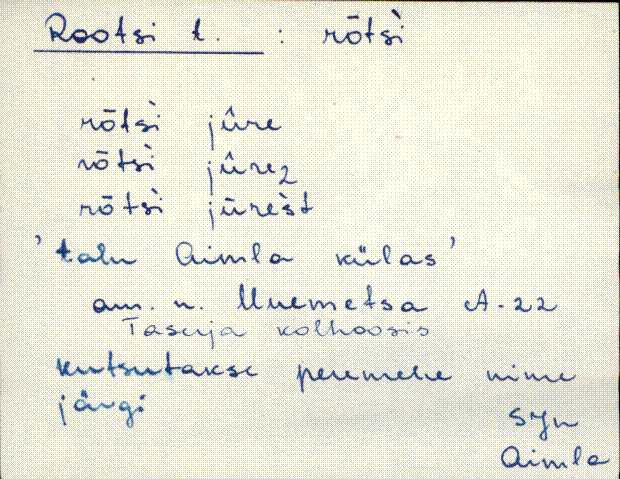 Rootsi t. : rōtsì
rōtsì jûre
rōtsì jûre2
rōtsì jūrèst
'talu Aimla külas'
am. n. Uuemetsa A-22
Tasuja kolhoosis
kutsutakse peremehe nime
järgi
Syn
Aimla